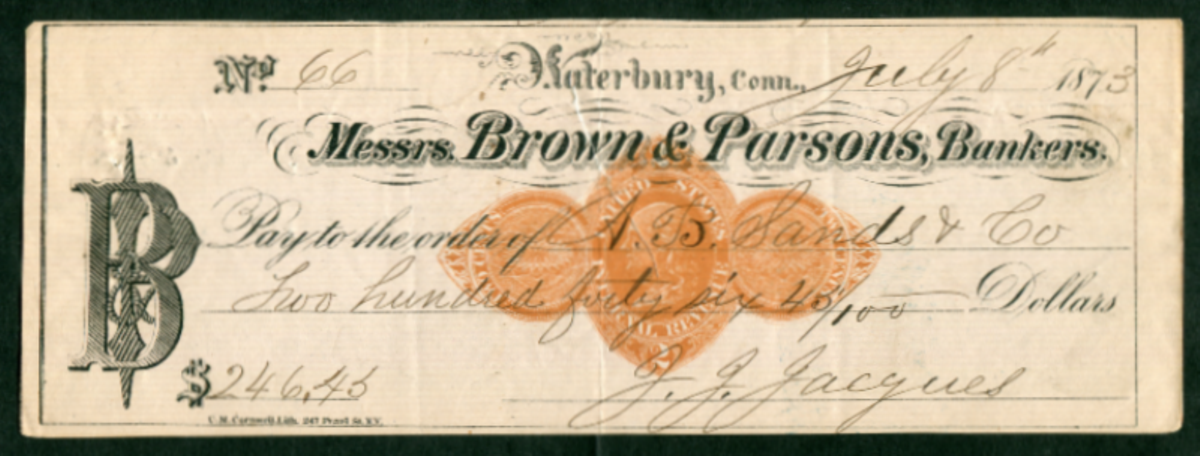 No. 66 Waterbury, Conn., July 8th 1873
Messrs. Brown & Parsons, Bankers.
Pay to the order of A. B. Sands & Co
Two hundred forty six 45/100 Dollars
$246,45
J. J. Jacques
247 Pearl St. N.Y.
UNITED STATES
INTERNAL REVENUE